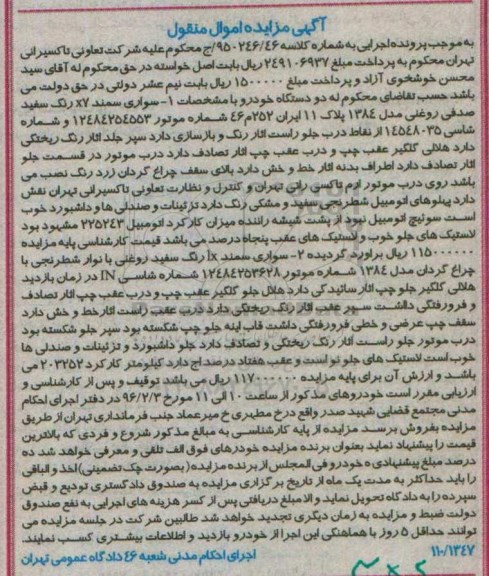 آگهی مزایده اموال منقول
به موجب پرونده اجرایی به شماره کلاسه ۹۵۰۲۴۶/۴۶/ج محکوم علیه شرکت تعاونی تاکسیرانی
تهران محکوم به پرداخت مبلغ ۲۴۹۱۰۶۹۳۷ ریال بابت اصل خواسته در حق محکوم له آقای سید
محسن خوشخوی آزاد و پرداخت مبلغ ۱۵۰۰۰۰۰ ریال بابت نیم عشر دولتی در حق دولت می
باشد حسب تقاضای محکوم له دو دستگاه خودرو با مشخصات ۱- سواری سمند x۷ رنگ سفید
صدفی روغنی مدل ۱۳۸۴ پلاک ۱۱ ایران ۲۵۲م۴۶ شماره موتور ۱۲۴۸۴۲۵۴۵۵۳ و شماره
شاسی ۱۴۵۴۸۰۳۵ از نقاط درب جلو راست آثار رنگ و بازسازی دارد سپر جلد آثار رنگ ریختگی
دارد هلالی گلگیر عقب چپ و درب عقب چپ آثار تصادف دارد درب موتور در قسمت جلو
آثار تصادف دارد اطراف بدنه آثار خط و خش دارد بالای سقف چراغ گردان زرد رنگ نصب می
باشد روی درب موتور آرم تاکسی رانی تهران و کنترل و نظارت تعاونی تاکسیرانی تهران نقش
دارد پهلوهای اتومبیل شطرنجی سفید و مشکی رنگ دارد تزئینات و صندلی ها و داشبورد خوب
است سوئیچ اتومبیل نبود از پشت شیشه راننده میزان کارکرد اتومبیل ۲۲۵۲۴۳ مشهود بود
لاستیک های جلو خوب و لاستیک های عقب پنجاه درصد می باشد قیمت کارشناسی پایه مزایده
۱۱۵۰۰۰۰۰۰ ریال برآورد گردیده ۲- سواری سمند lx رنگ سفید روغنی با نوار شطرنجی با
چراغ گردان مدل ۱۳۸۴ شماره موتور ۱۲۴۸۴۲۵۳۶۲۸ شماره شاسی IN در زمان بازدید
هلالی گلگیر جلو چپ آثار سائیدگی دارد هلال جلو گلگیر عقب چپ و درب عقب چپ آثار تصادف
و فرورفتگی داشت سپر عقب آثار رنگ ریختگی دارد درب عقب راست آثار خط و خش دارد
سقف چپ عرضی و خطی فرورفتگی داشت قاب آینه جلو چپ شکسته بود سپر جلو شکسته بود
درب موتور جلو راست آثار رنگ ریختگی و تصادف دارد جلو داشبورد و تزئینات و صندلی ها
خوب است لاستیک های جلو نو است و عقب هفتاد درصد آج دارد کیلومتر کارکرد ۲۰۳۲۵۲ می
باشد و ارزش آن برای پایه مزایده ۱۱۷۰۰۰۰۰۰ ریال می باشد توقیف و پس از کارشناسی و
ارزیابی مقرر است خودروهای مذکور از ساعت ۱۰ الی ۱۱ مورخ ۹۶/۲/۳ در دفتر اجرای احکام
مدنی مجتمع قضایی شهید صدر واقع در خ مطهری خ میرعماد جنب فرمانداری تهران از طریق
مزایده بفروش برسد مزایده از پایه کارشناسی به مبالغ مذکور شروع و فردی که بالاترین
قیمت را پیشنهاد نماید بعنوان برنده مزایده خودرهای فوق الف تلقی و معرفی خواهد شد ده
درصد مبلغ پیشنهادی ه خودرو فی المجلس از برنده مزایده (بصورت چک تضمینی) اخذ و الباقی
را باید حداکثر به مدت یک ماه از تاریخ برگزاری مزایده به صندوق دادگستری تودیع و قبض
سپرده را به دادگاه تحویل نماید و الا مبلغ دریافتی پس از کسر هزینه های اجرایی به نفع صندوق
دولت ضبط و مزایده به زمان دیگری تجدید خواهد شد طالبین شرکت در جلسه مزایده می
توانند حداقل ۵ روز با هماهنگی این اجرا از خودرو بازدید و اطلاعات بیشتری کسب نمایند.
۱۱۰/۱۳۴۷ اجرای احکام مدنی شعبه ۴۶ دادگاه عمومی تهران